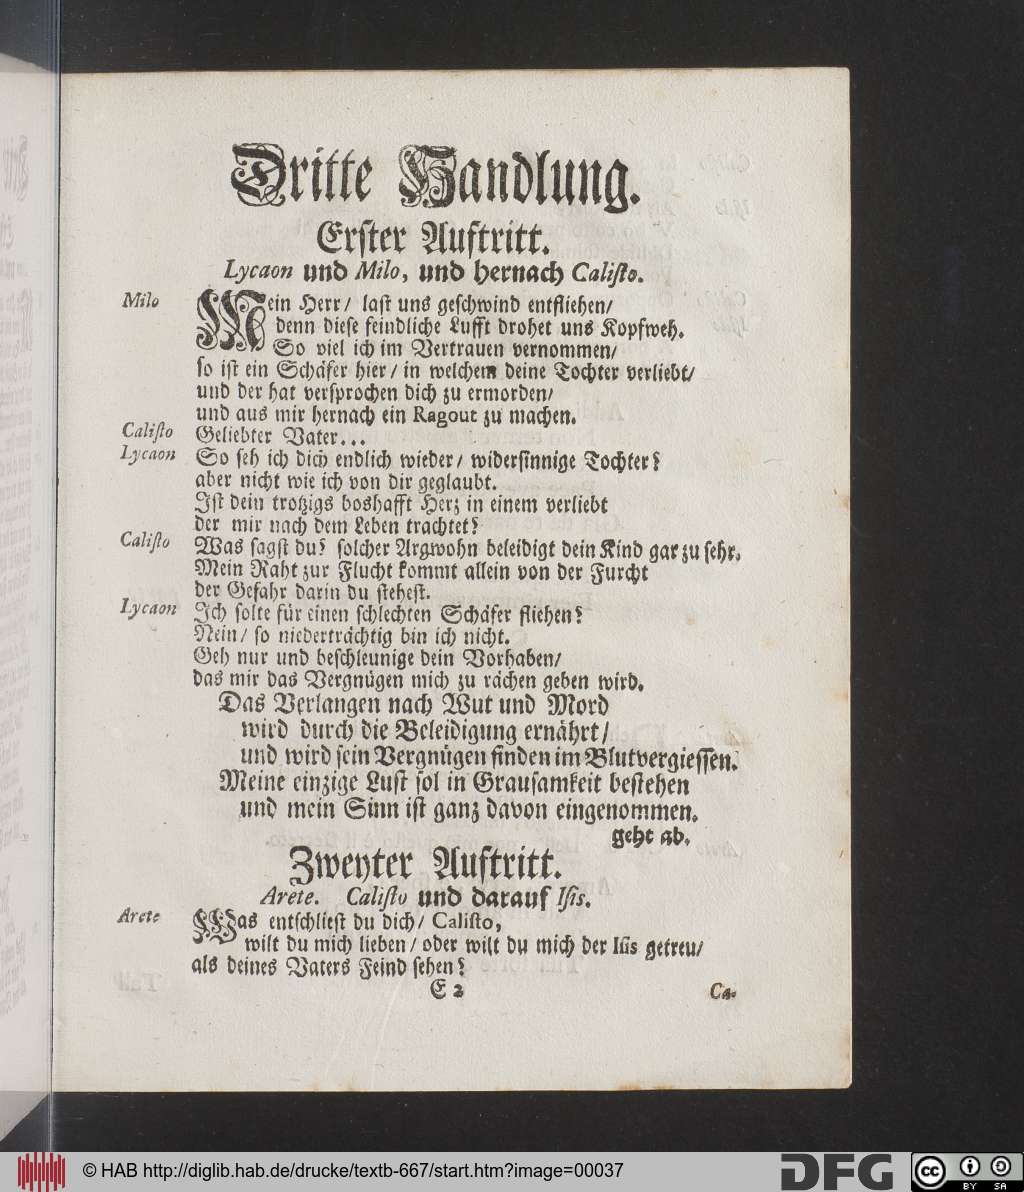 Dritte Handlung.
Erster Auftritt.
Lycaon und Milo, und hernach Calisto.
Milo Mein Herr/ last uns geschwind entfliehen/
denn diese feindliche Lufft drohet uns Kopfweh.
So viel ich im Vertrauen vernommen/
so ist ein Schäfer hier/ in welchem deine Tochter verliebt/
und der hat versprochen dich zu ermorden/
und aus mir hernach ein Ragout zu machen.
Calisto Geliebter Vater...
Lycaon So seh ich dich endlich wieder/ widersinnige Tochter?
aber nicht wie ich von dir geglaubt.
Ist dein trotzigs boshafft Herz in einem verliebt
der mir nach dem Leben trachtet?
Calisto Was sagst du? solcher Argwohn beleidigt dein Kind gar zu sehr.
Mein Raht zur Flucht kommt allein von der Furcht
der Gefahr darin du stehest.
Lycaon Ich solte für einen schlechten Schäfer fliehen?
Nein/ so niederträchtig bin ich nicht.
Geh nur und beschleunige dein Vorhaben/
das mir das Vergnügen mich zu rächen geben wird.
Das Verlangen nach Wut und Mord
wird durch die Beleidigung ernährt/
und wird sein Vergnügen finden im Blutvergiessen.
Meine einzige Lust sol in Grausamkeit bestehen
und mein Sinn ist ganz davon eingenommen.
geht ab.
Zweyter Auftritt.
Arete. Calisto und darauf Isis.
Arete Was entschliest du dich/ Calisto,
wilt du mich lieben/ oder wilt du mich der Isis getreu/
als deines Vaters Feind sehen?
E 2 Ca-
© HAB http://diglib.hab.de/drucke/textb-667/start.htm?image=00037
DFG
cc BY SA